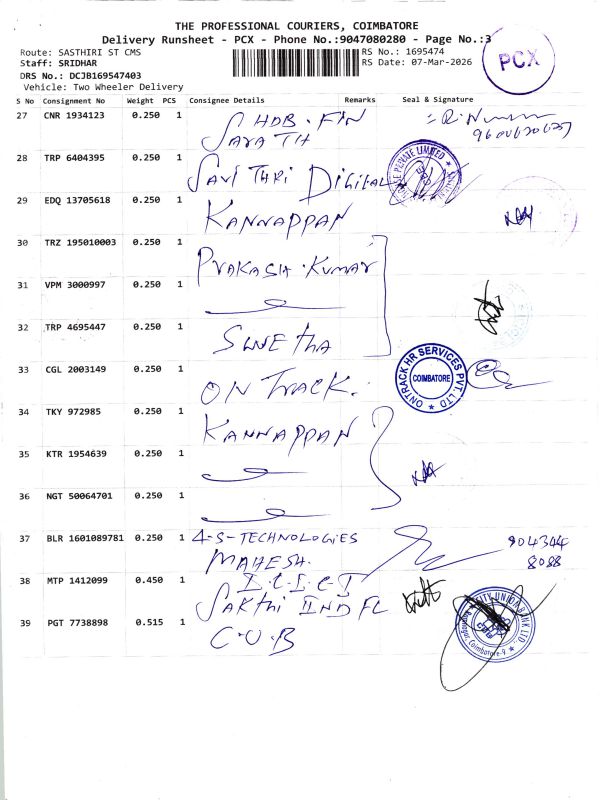 THE PROFESSIONAL COURIERS, COIMBATORE
Delivery Runsheet - PCX - Phone No.:9047080280 - Page No.:3
Route: SASTHIRI ST CMS
RS No.: 1695474
Staff: SRIDHAR
RS Date: 07-Mar-2026
DRS No.: DCJB169547403
Vehicle: Two Wheeler Delivery
PCX
S No Consignment No Weight PCS Consignee Details Remarks Seal & Signature
27 CNR 1934123 0.250 1 HDB. FIN
SARATH
28 TRP 6404395 0.250 1 SAVITHRI DIGITAL
PRIVATE LIMITED
29 EDQ 13705618 0.250 1 KANNAPPAN
30 TRZ 195010003 0.250 1 PRAKASH. KUMAR
31 VPM 3000997 0.250 1
32 TRP 4695447 0.250 1 SWETHA
33 CGL 2003149 0.250 1 ON TRACK.
ONTRACK HR SERVICES PVT. LTD
COIMBATORE
34 TKY 972985 0.250 1 KANNAPPAN
35 KTR 1954639 0.250 1
36 NGT 50064701 0.250 1
37 BLR 1601089781 0.250 1 4-S-TECHNOLOGIES
MAHESH.
904344
8088
38 MTP 1412099 0.450 1 I.C.I.C.I
SAKTHI IIND FL
39 PGT 7738898 0.515 1 C.U.B
CITY UNION BANK LTD.
Coimbatore-9